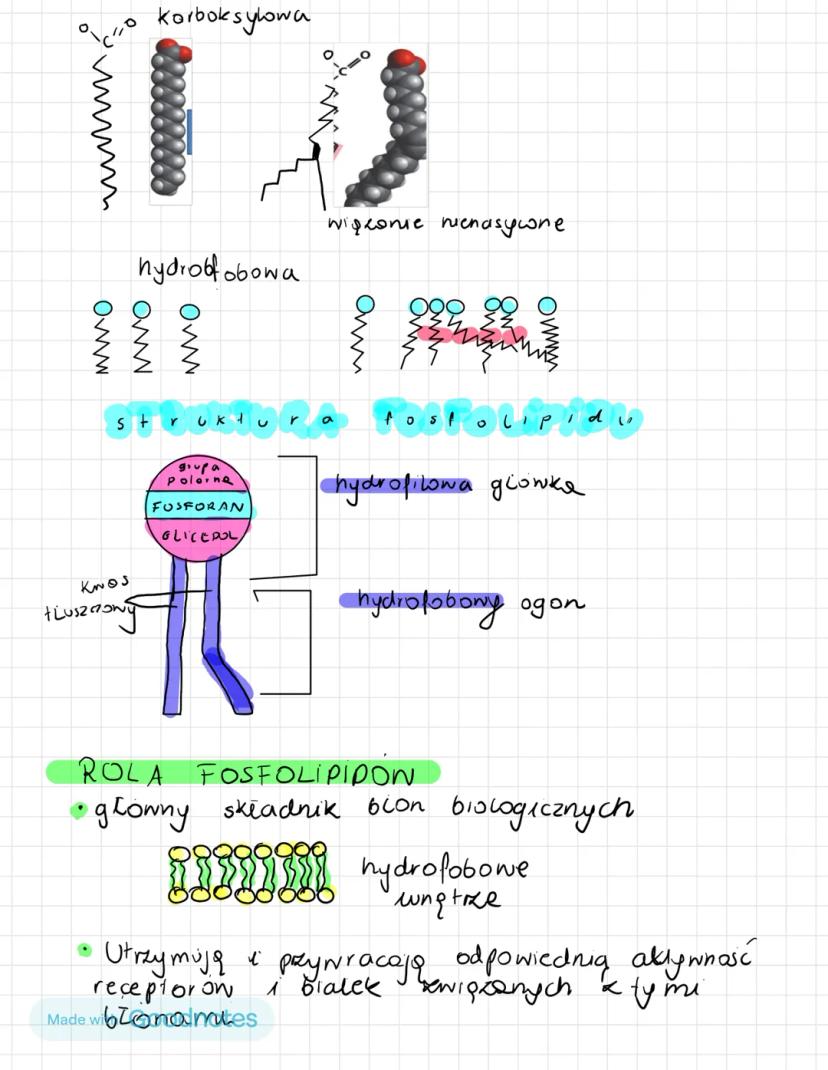 karboksylowa
O O
C
O O
C
wiązanie nienasycone
hydrofobowa
struktura fosfolipidu
grupa
polarna
FOSFORAN
GLICEROL
hydrofilowa główka
kwas
tłuszczowy
hydrofobowy ogon
ROLA FOSFOLIPIDÓW
• główny składnik błon biologicznych
hydrofobowe
wnętrze
• Utrzymują i przywracają odpowiednią aktywność
receptorów i białek związanych z tymi
błonami
Made with Goodnotes